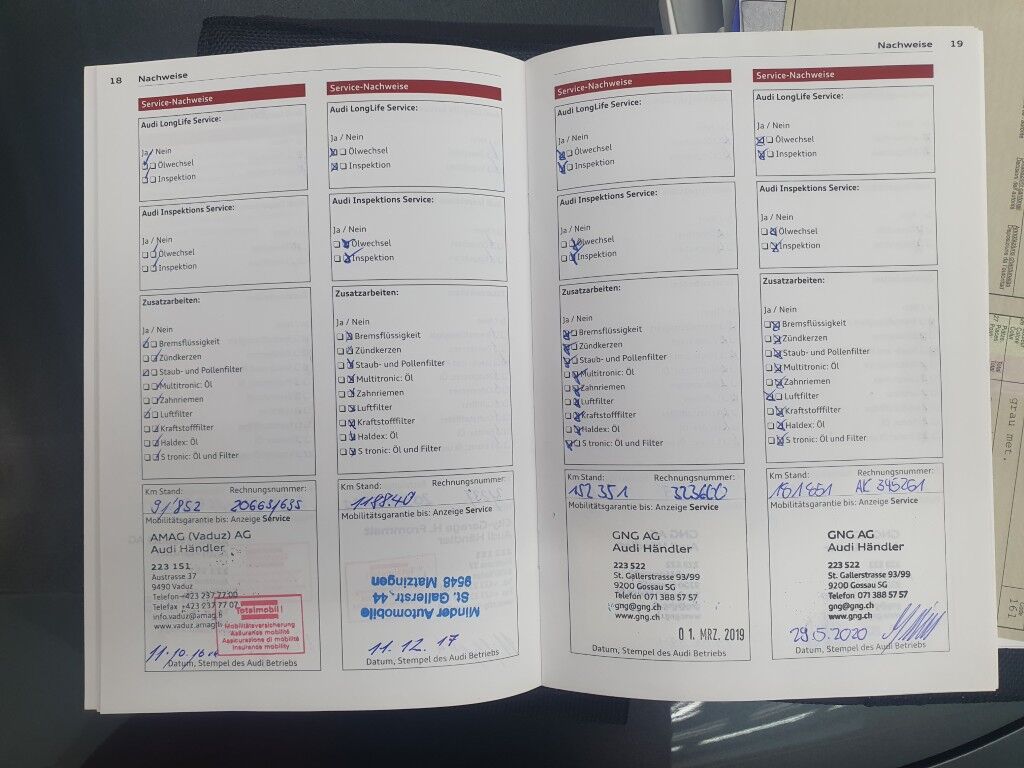 18 Nachweise
Service-Nachweise
Audi LongLife Service:
Ja / Nein
Ölwechsel
Inspektion
Audi Inspektions Service:
Ja / Nein
Ölwechsel
Inspektion
Zusatzarbeiten:
Ja / Nein
Bremsflüssigkeit
Zündkerzen
Staub- und Pollenfilter
Multitronic: Öl
Zahnriemen
Luftfilter
Kraftstofffilter
Haldex: Öl
S tronic: Öl und Filter
Km Stand: Rechnungsnummer:
Mobilitätsgarantie bis: Anzeige Service
AMAG (Vaduz) AG
Audi Händler
223 151
Austrasse 37
9490 Vaduz
Telefon +423 237 77 00
Telefax +423 237 77 07
info.vaduz@amag.
www.vaduz.amag.
Totalmobil!
Mobilitätsversicherung
Assurance mobilité
Assicurazione di mobilità
Insurance mobility
11.10.16
Datum, Stempel des Audi Betriebs
Service-Nachweise
Audi LongLife Service:
Ja / Nein
Ölwechsel
Inspektion
Audi Inspektions Service:
Ja / Nein
Ölwechsel
Inspektion
Zusatzarbeiten:
Ja / Nein
Bremsflüssigkeit
Zündkerzen
Staub- und Pollenfilter
Multitronic: Öl
Zahnriemen
Luftfilter
Kraftstofffilter
Haldex: Öl
S tronic: Öl und Filter
Km Stand: Rechnungsnummer:
118840
Mobilitätsgarantie bis: Anzeige Service
Minder Automobile
St. Gallerstr. 44
9548 Matzingen
11. 12. 17
Datum, Stempel des Audi Betriebs
Nachweise 19
Service-Nachweise
Audi LongLife Service:
Ja / Nein
Ölwechsel
Inspektion
Audi Inspektions Service:
Ja / Nein
Ölwechsel
Inspektion
Zusatzarbeiten:
Ja / Nein
Bremsflüssigkeit
Zündkerzen
Staub- und Pollenfilter
Multitronic: Öl
Zahnriemen
Luftfilter
Kraftstofffilter
Haldex: Öl
S tronic: Öl und Filter
Km Stand: Rechnungsnummer:
152 351 323600
Mobilitätsgarantie bis: Anzeige Service
GNG AG
Audi Händler
223 522
St. Gallerstrasse 93/99
9200 Gossau SG
Telefon 071 388 57 57
gng@gng.ch
www.gng.ch
01. MRZ. 2019
Datum, Stempel des Audi Betriebs
Service-Nachweise
Audi LongLife Service:
Ja / Nein
Ölwechsel
Inspektion
Audi Inspektions Service:
Ja / Nein
Ölwechsel
Inspektion
Zusatzarbeiten:
Ja / Nein
Bremsflüssigkeit
Zündkerzen
Staub- und Pollenfilter
Multitronic: Öl
Zahnriemen
Luftfilter
Kraftstofffilter
Haldex: Öl
S tronic: Öl und Filter
Km Stand: Rechnungsnummer:
161 851 AK 345261
Mobilitätsgarantie bis: Anzeige Service
GNG AG
Audi Händler
223 522
St. Gallerstrasse 93/99
9200 Gossau SG
Telefon 071 388 57 57
gng@gng.ch
www.gng.ch
29.5.2020
Datum, Stempel des Audi Betriebs
grau met.